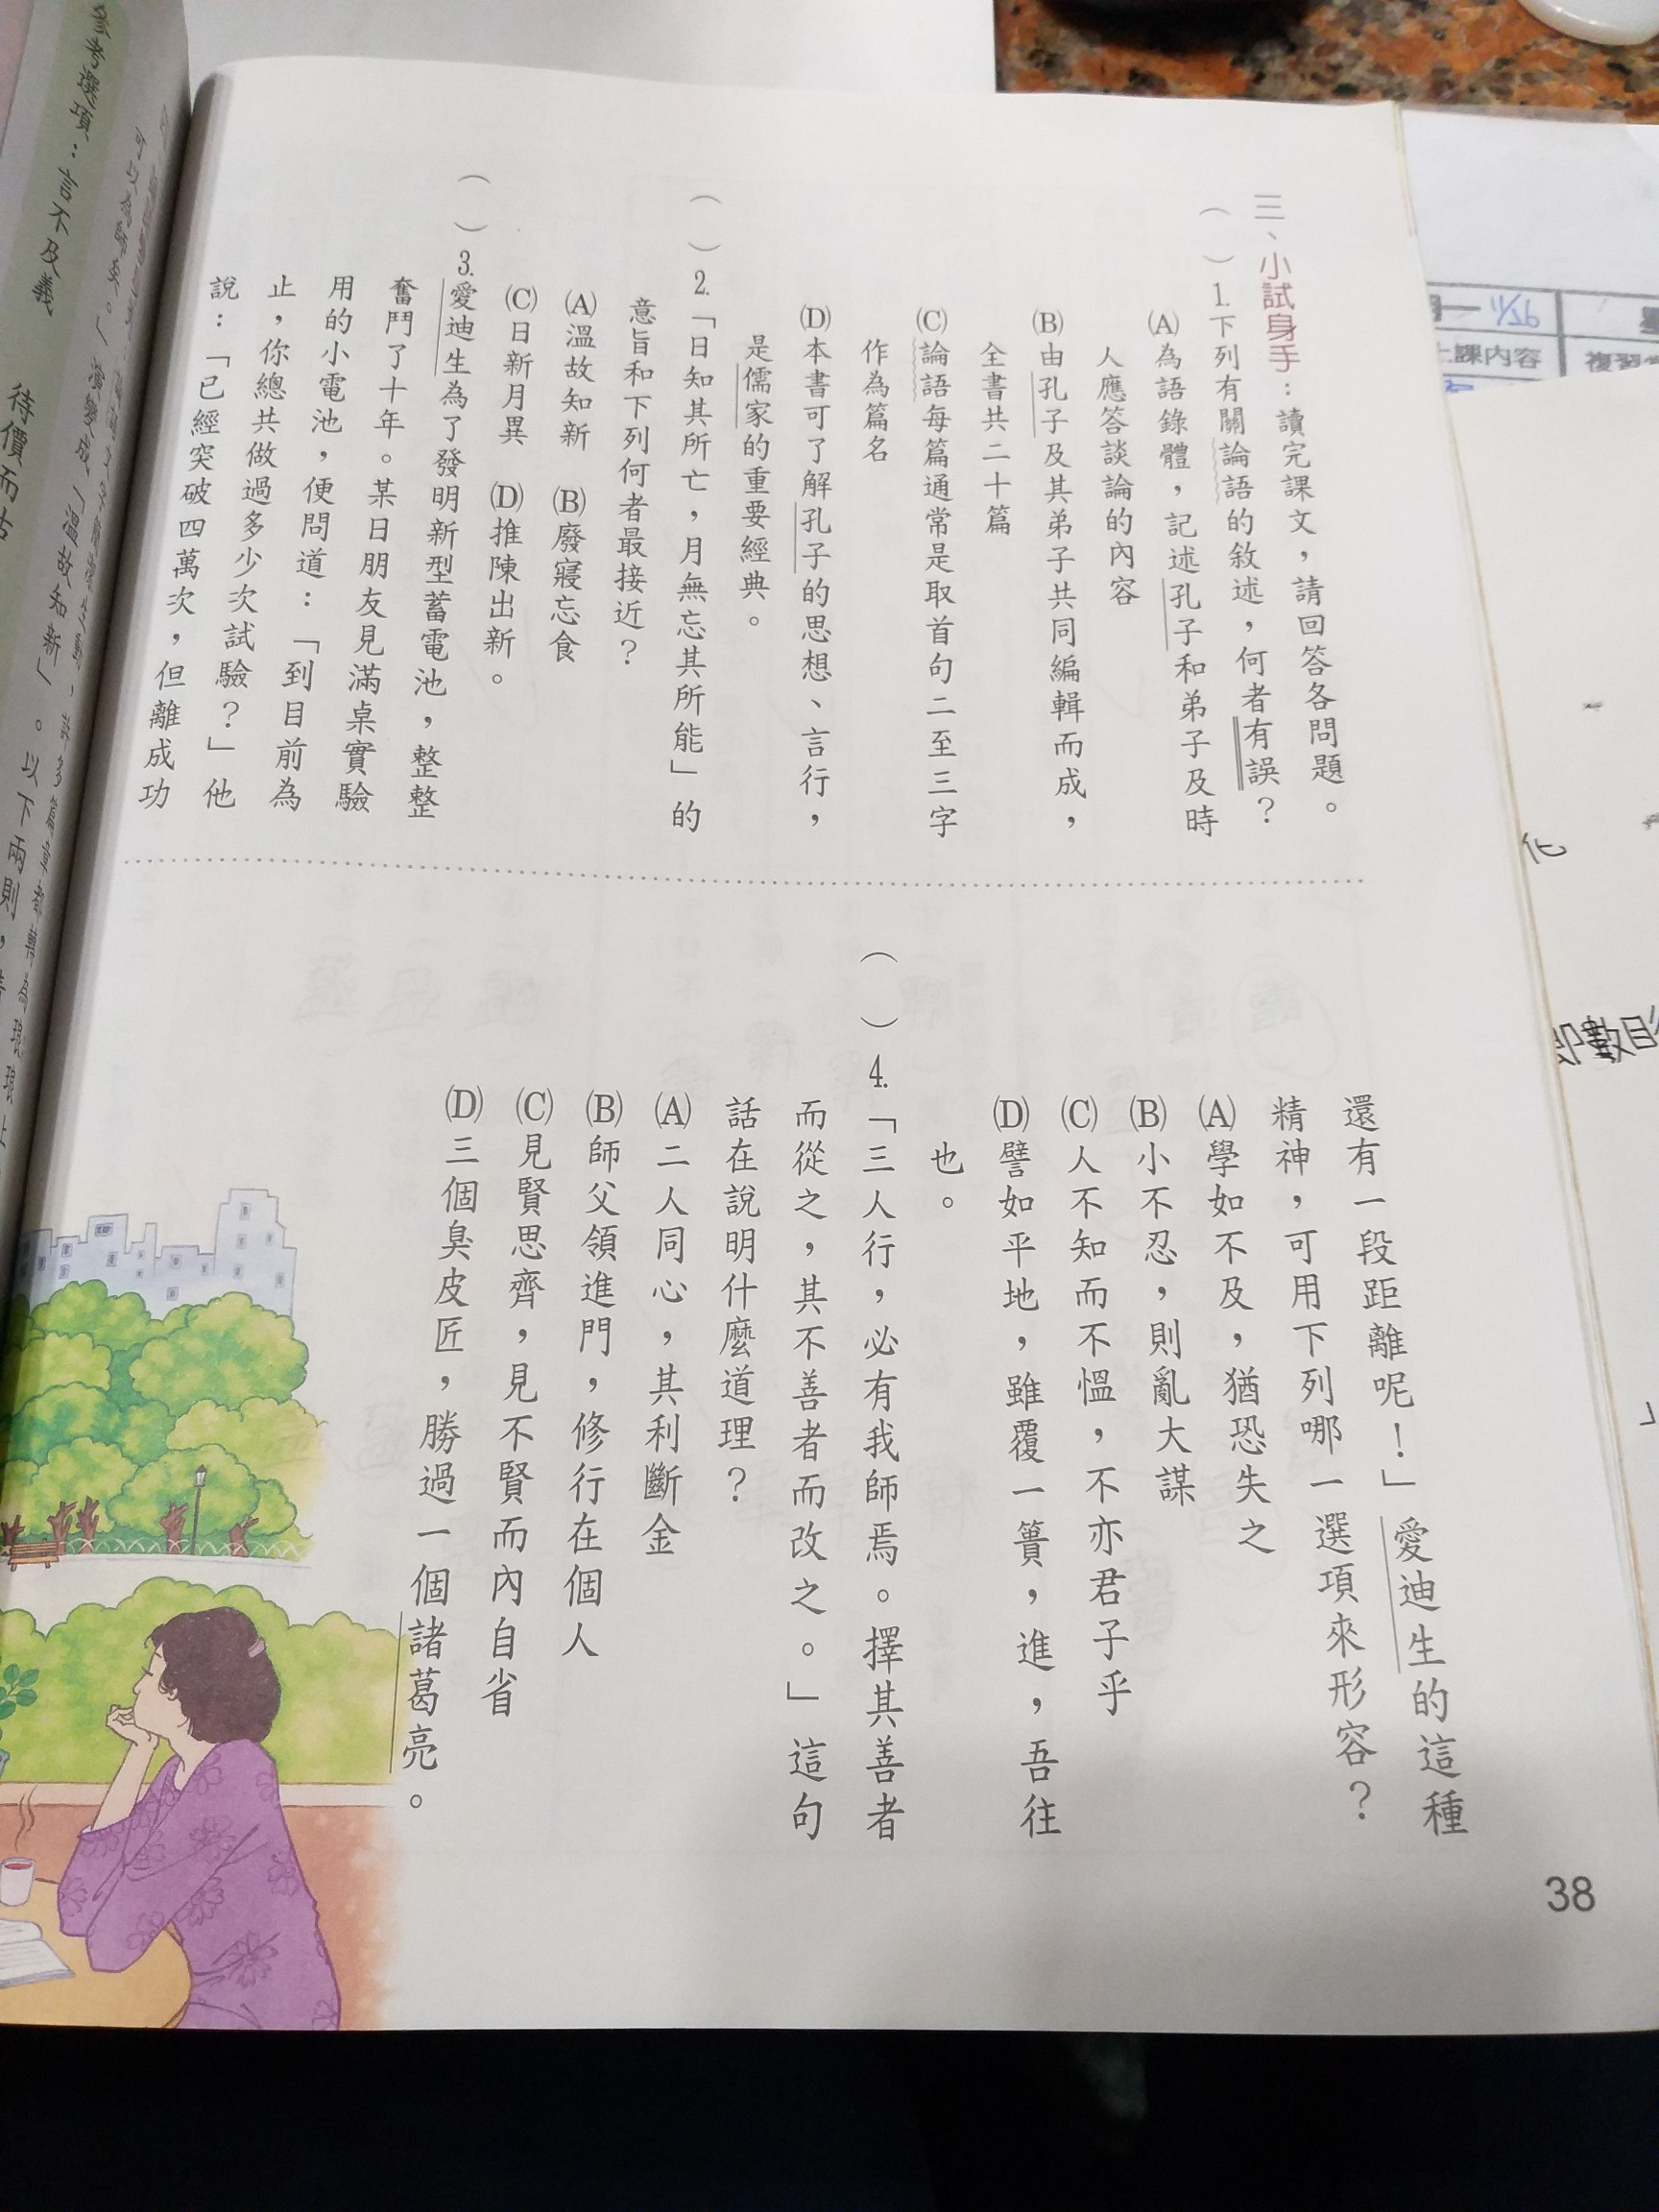 三、小試身手：讀完課文，請回答各問題。
（　）1.下列有關論語的敘述，何者有誤？
(A)為語錄體，記述孔子和弟子及時
人應答談論的內容
(B)由孔子及其弟子共同編輯而成，
全書共二十篇
(C)論語每篇通常是取首句二至三字
作為篇名
(D)本書可了解孔子的思想、言行，
是儒家的重要經典。
（　）2.「日知其所亡，月無忘其所能」的
意旨和下列何者最接近？
(A)溫故知新　(B)廢寢忘食
(C)日新月異　(D)推陳出新。
（　）3.愛迪生為了發明新型蓄電池，整整
奮鬥了十年。某日朋友見滿桌實驗
用的小電池，便問道：「到目前為
止，你總共做過多少次試驗？」他
說：「已經突破四萬次，但離成功
還有一段距離呢！」愛迪生的這種
精神，可用下列哪一選項來形容？
(A)學如不及，猶恐失之
(B)小不忍，則亂大謀
(C)人不知而不慍，不亦君子乎
(D)譬如平地，雖覆一簣，進，吾往
也。
（　）4.「三人行，必有我師焉。擇其善者
而從之，其不善者而改之。」這句
話在說明什麼道理？
(A)二人同心，其利斷金
(B)師父領進門，修行在個人
(C)見賢思齊，見不賢而內自省
(D)三個臭皮匠，勝過一個諸葛亮。
38
可以為師矣。」演變成「溫故知新」。以下兩則，
參考選項：言不及義　待價而沽
11/26
上課內容
複習
化
數